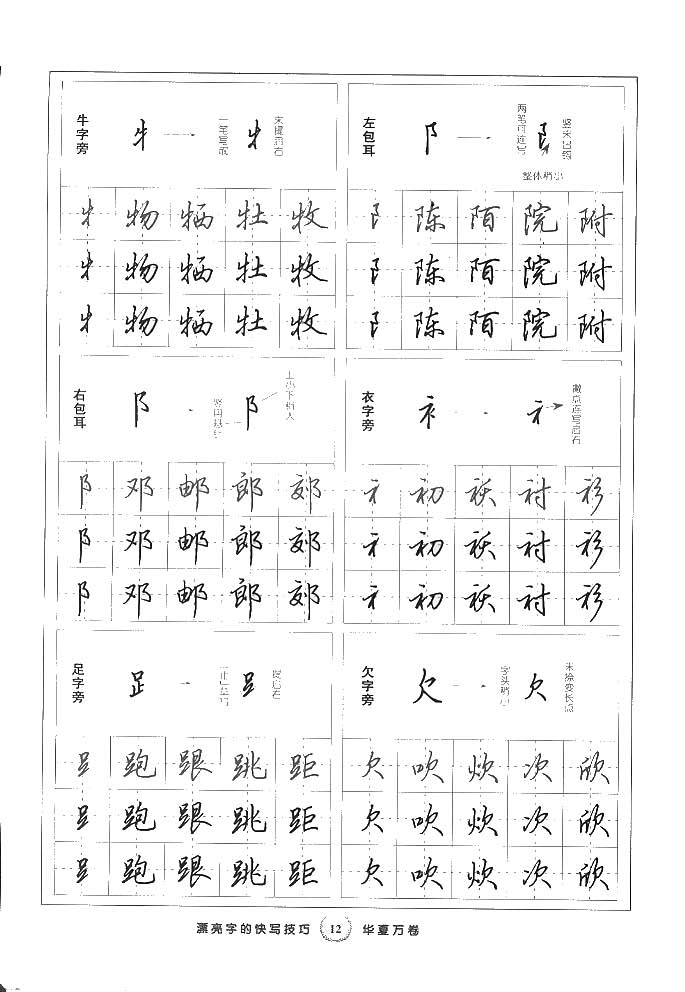 牛字旁 牜 牜 一笔写成 末提启右
牜 物 牺 牡 牧
牜 物 牺 牡 牧
牜 物 牺 牡 牧
左包耳 阝 阝 两笔可连写 竖末出钩 整体稍小
阝 陈 陌 院 附
阝 陈 陌 院 附
阝 陈 陌 院 附
右包耳 阝 阝 竖用悬针 上小下稍大
阝 邓 邮 郎 郊
阝 邓 邮 郎 郊
阝 邓 邮 郎 郊
衣字旁 衤 衤 撇点连写启右
衤 初 袄 衬 衫
衤 初 袄 衬 衫
衤 初 袄 衬 衫
足字旁 𧾷 𧾷 提启右
𧾷 跑 跟 跳 距
𧾷 跑 跟 跳 距
𧾷 跑 跟 跳 距
欠字旁 欠 欠 字头稍小 末捺变长点
欠 吹 炊 次 欣
欠 吹 炊 次 欣
欠 吹 炊 次 欣
漂亮字的快写技巧 12 华夏万卷